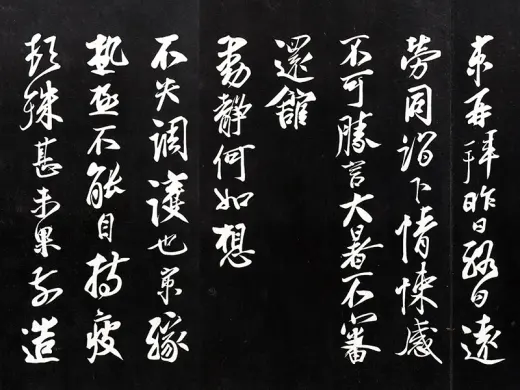 京再拜昨日終日遠
勞同詣下情悚感
不可勝言大暑不審
還舘
動靜何如想
不失調護也京緣
熱極不能自持疲
頓殊甚未果前造